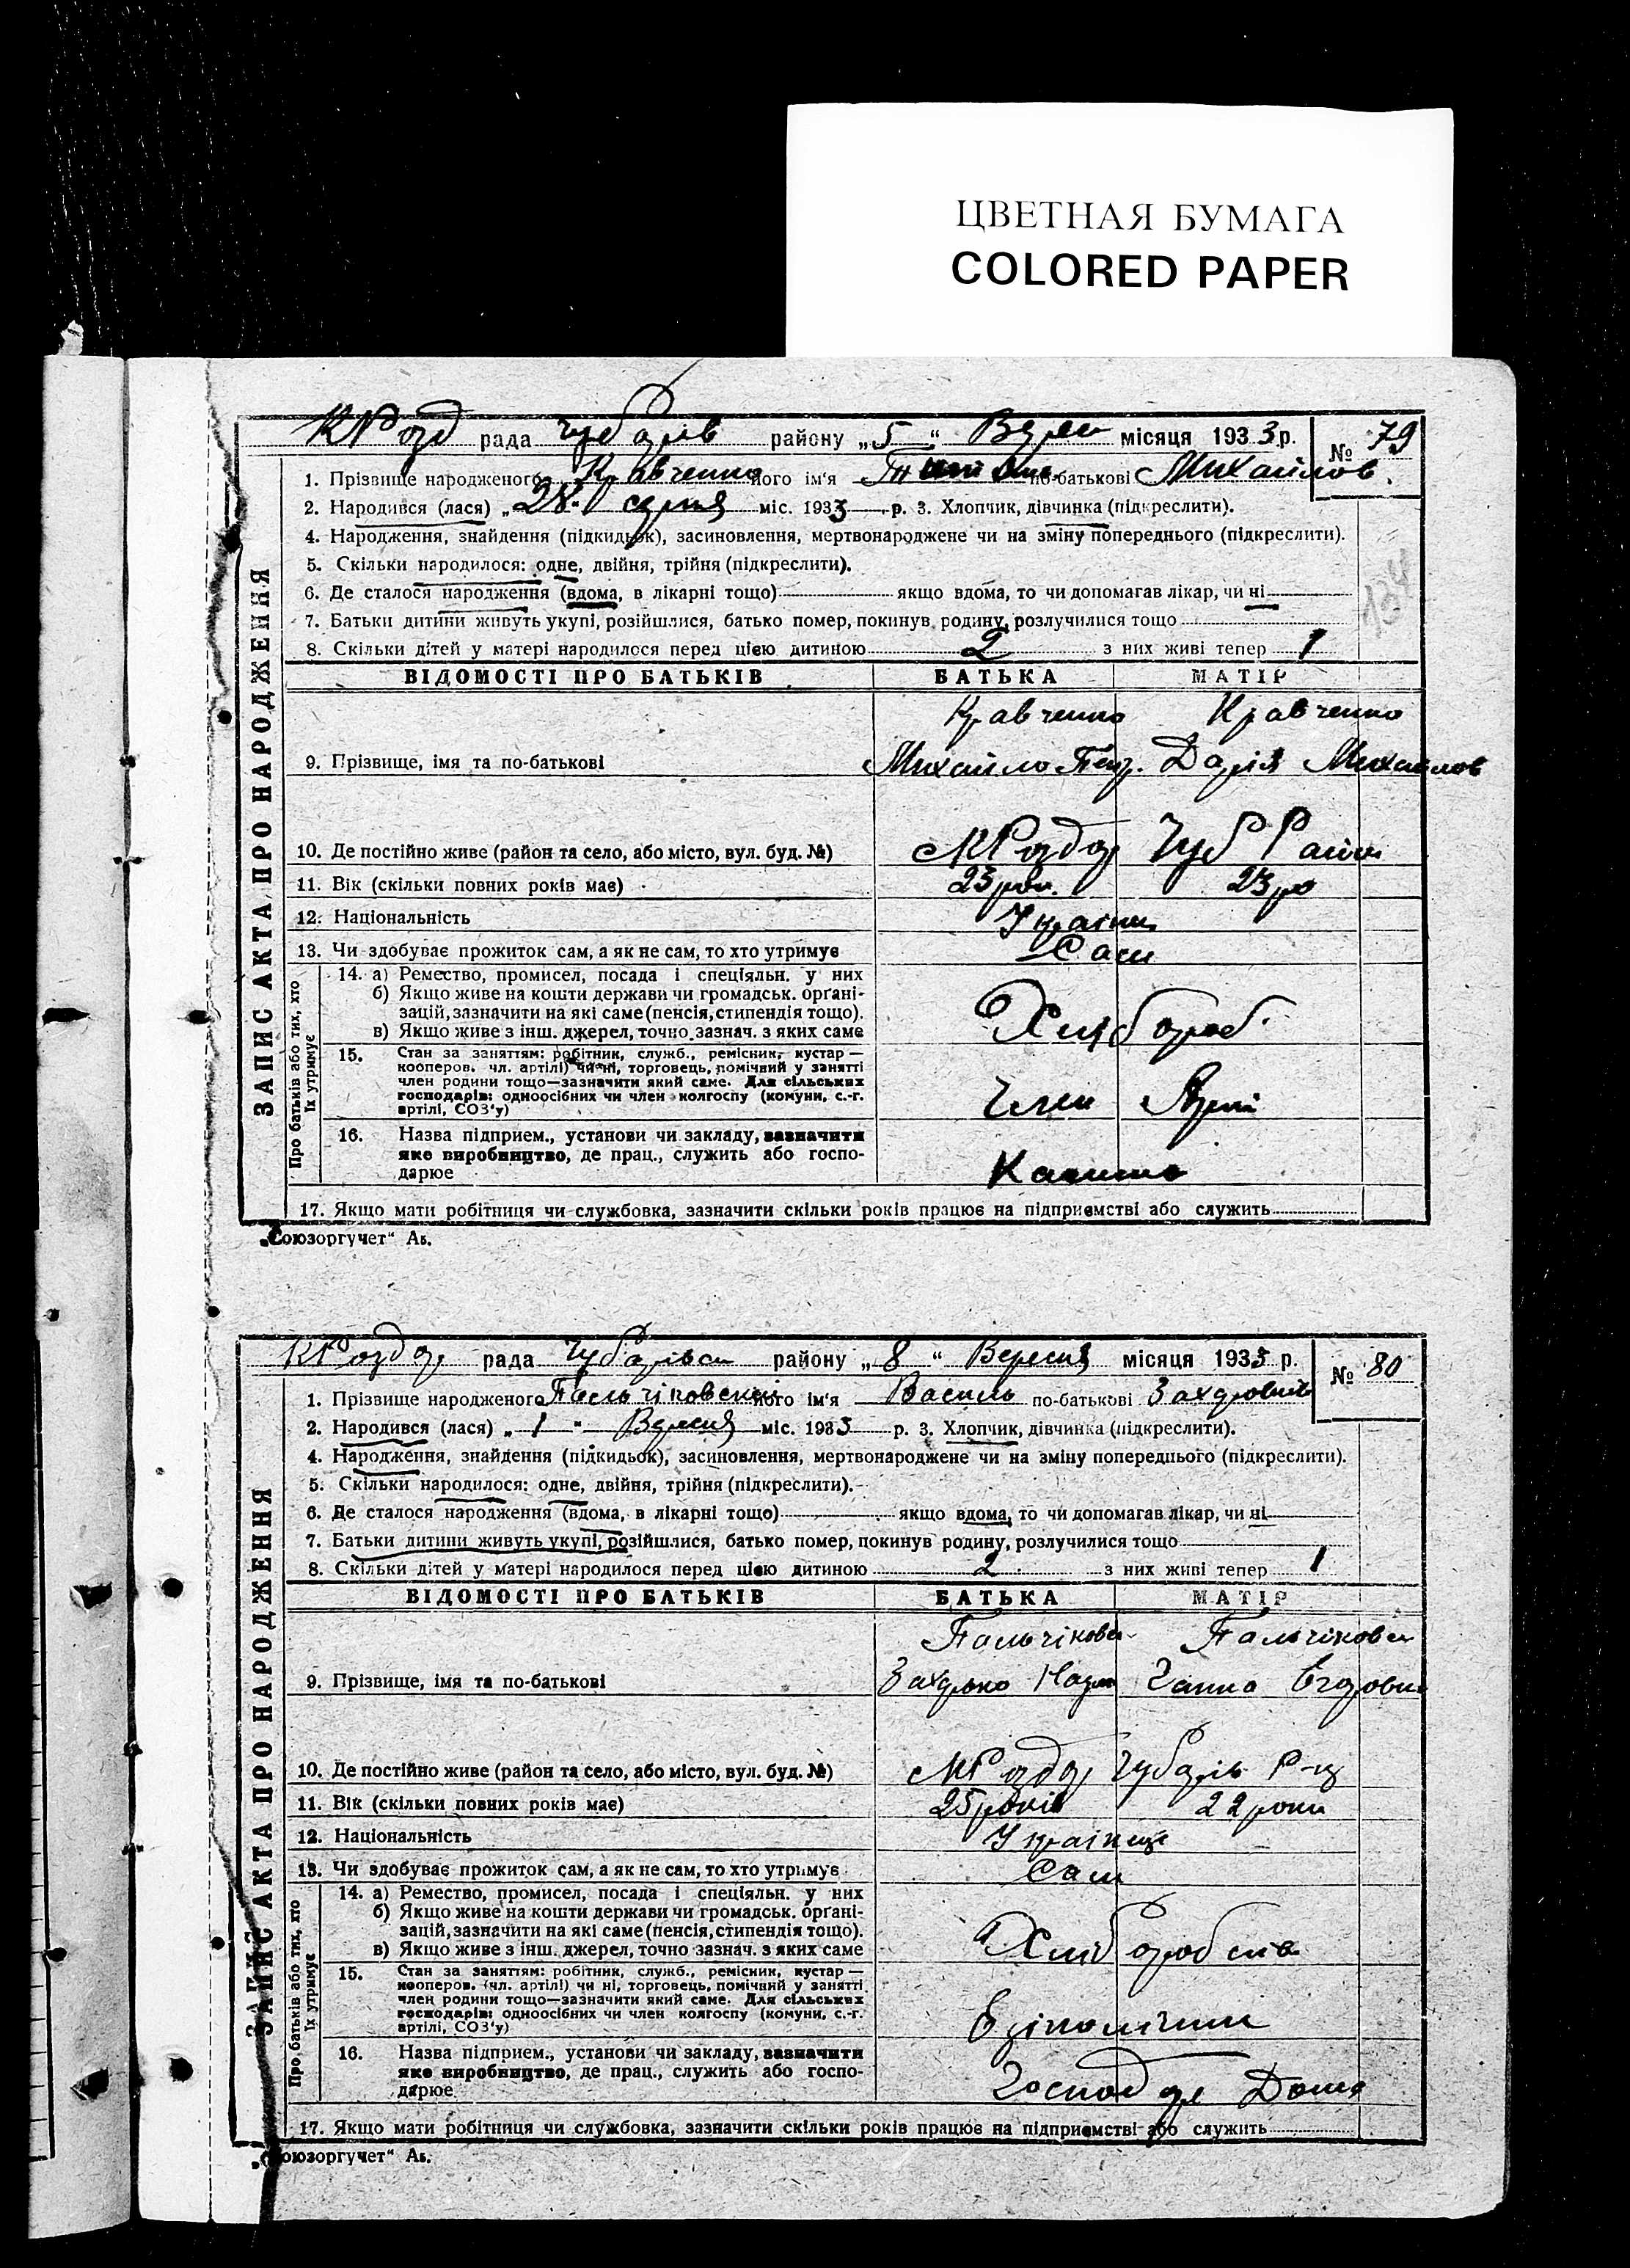 ЦВЕТНАЯ БУМАГА
COLORED PAPER
рада районy „5“ місяця 1933 р. № 79
1. Прізвище народженого Кравченко його ім'я по-батькові Михайлов.
2. Народився (лася) „28 серпня міс. 1933 р. 3. Хлопчик, дівчинка (підкреслити).
4. Народження, знайдення (підкидьок), засиновлення, мертвонароджене чи на зміну попереднього (підкреслити).
5. Скільки народилося: одне, двійня, трійня (підкреслити).
6. Де сталося народження (вдома, в лікарні тощо) якщо вдома, то чи допомагав лікар, чи ні
7. Батьки дитини живуть укупі, розійшлися, батько помер, покинув родину, розлучилися тощо
8. Скільки дітей у матері народилося перед цією дитиною 2 з них живі тепер 1
ЗАПИС АКТА ПРО НАРОДЖЕННЯ
ВІДОМОСТІ ПРО БАТЬКІВ БАТЬКА МАТІР
Кравченко Кравченко
9. Прізвище, імя та по-батькові Михайло Дарія Михайлов
10. Де постійно живе (район та село, або місто, вул. буд. №) Чуб
11. Вік (скільки повних років має) 23 23
12. Національність
13. Чи здобуває прожиток сам, а як не сам, то хто утримує Сам
Про батьків або тих, хто їх утримує
14. а) Ремество, промисел, посада і спеціяльн. у них
б) Якщо живе на кошти держави чи громадськ. органі-
зацій, зазначити на які саме (пенсія, стипендія тощо).
в) Якщо живе з інш. джерел, точно зазнач. з яких саме
Хлібороб.
15. Стан за заняттям: робітник, служб., ремісник, кустар —
кооперов. чл. артілі) чи ні, торговець, помічний у занятті
член родини тощо—зазначити який саме. Для сільських
господарів: одноосібних чи член колгоспу (комуни, с.-г.
артілі, СОЗ'у)
Член
16. Назва підприєм., установи чи закладу, зазначити
яке виробництво, де прац., служить або госпо-
дарює
17. Якщо мати робітниця чи службовка, зазначити скільки років працює на підприємстві або служить
„Союзоргучет“ Ав.
рада району „8“ Вересня місяця 1933 р. № 80
1. Прізвище народженого його ім'я Василь по-батькові
2. Народився (лася) „1“ Вересня міс. 1933 р. 3. Хлопчик, дівчинка (підкреслити).
4. Народження, знайдення (підкидьок), засиновлення, мертвонароджене чи на зміну попереднього (підкреслити).
5. Скільки народилося: одне, двійня, трійня (підкреслити).
6. Де сталося народження (вдома, в лікарні тощо) якщо вдома, то чи допомагав лікар, чи ні
7. Батьки дитини живуть укупі, розійшлися, батько помер, покинув родину, розлучилися тощо
8. Скільки дітей у матері народилося перед цією дитиною 2 з них живі тепер 1
ЗАПИС АКТА ПРО НАРОДЖЕННЯ
ВІДОМОСТІ ПРО БАТЬКІВ БАТЬКА МАТІР
Пальчікови Пальчікови
9. Прізвище, імя та по-батькові Захарко Ганна
10. Де постійно живе (район та село, або місто, вул. буд. №)
11. Вік (скільки повних років має) 25 років 22 роки
12. Національність Українці
13. Чи здобуває прожиток сам, а як не сам, то хто утримує Сам
Про батьків або тих, хто їх утримує
14. а) Ремество, промисел, посада і спеціяльн. у них
б) Якщо живе на кошти держави чи громадськ. органі-
зацій, зазначити на які саме (пенсія, стипендія тощо).
в) Якщо живе з інш. джерел, точно зазнач. з яких саме
15. Стан за заняттям: робітник, служб., ремісник, кустар —
кооперов. (чл. артілі) чи ні, торговець, помічний у занятті
член родини тощо—зазначити який саме. Для сільських
господарів: одноосібних чи член колгоспу (комуни, с.-г.
артілі, СОЗ'у)
16. Назва підприєм., установи чи закладу, зазначити
яке виробництво, де прац., служить або госпо-
дарює
Дома
17. Якщо мати робітниця чи службовка, зазначити скільки років працює на підприємстві або служить
„Союзоргучет“ Ав.